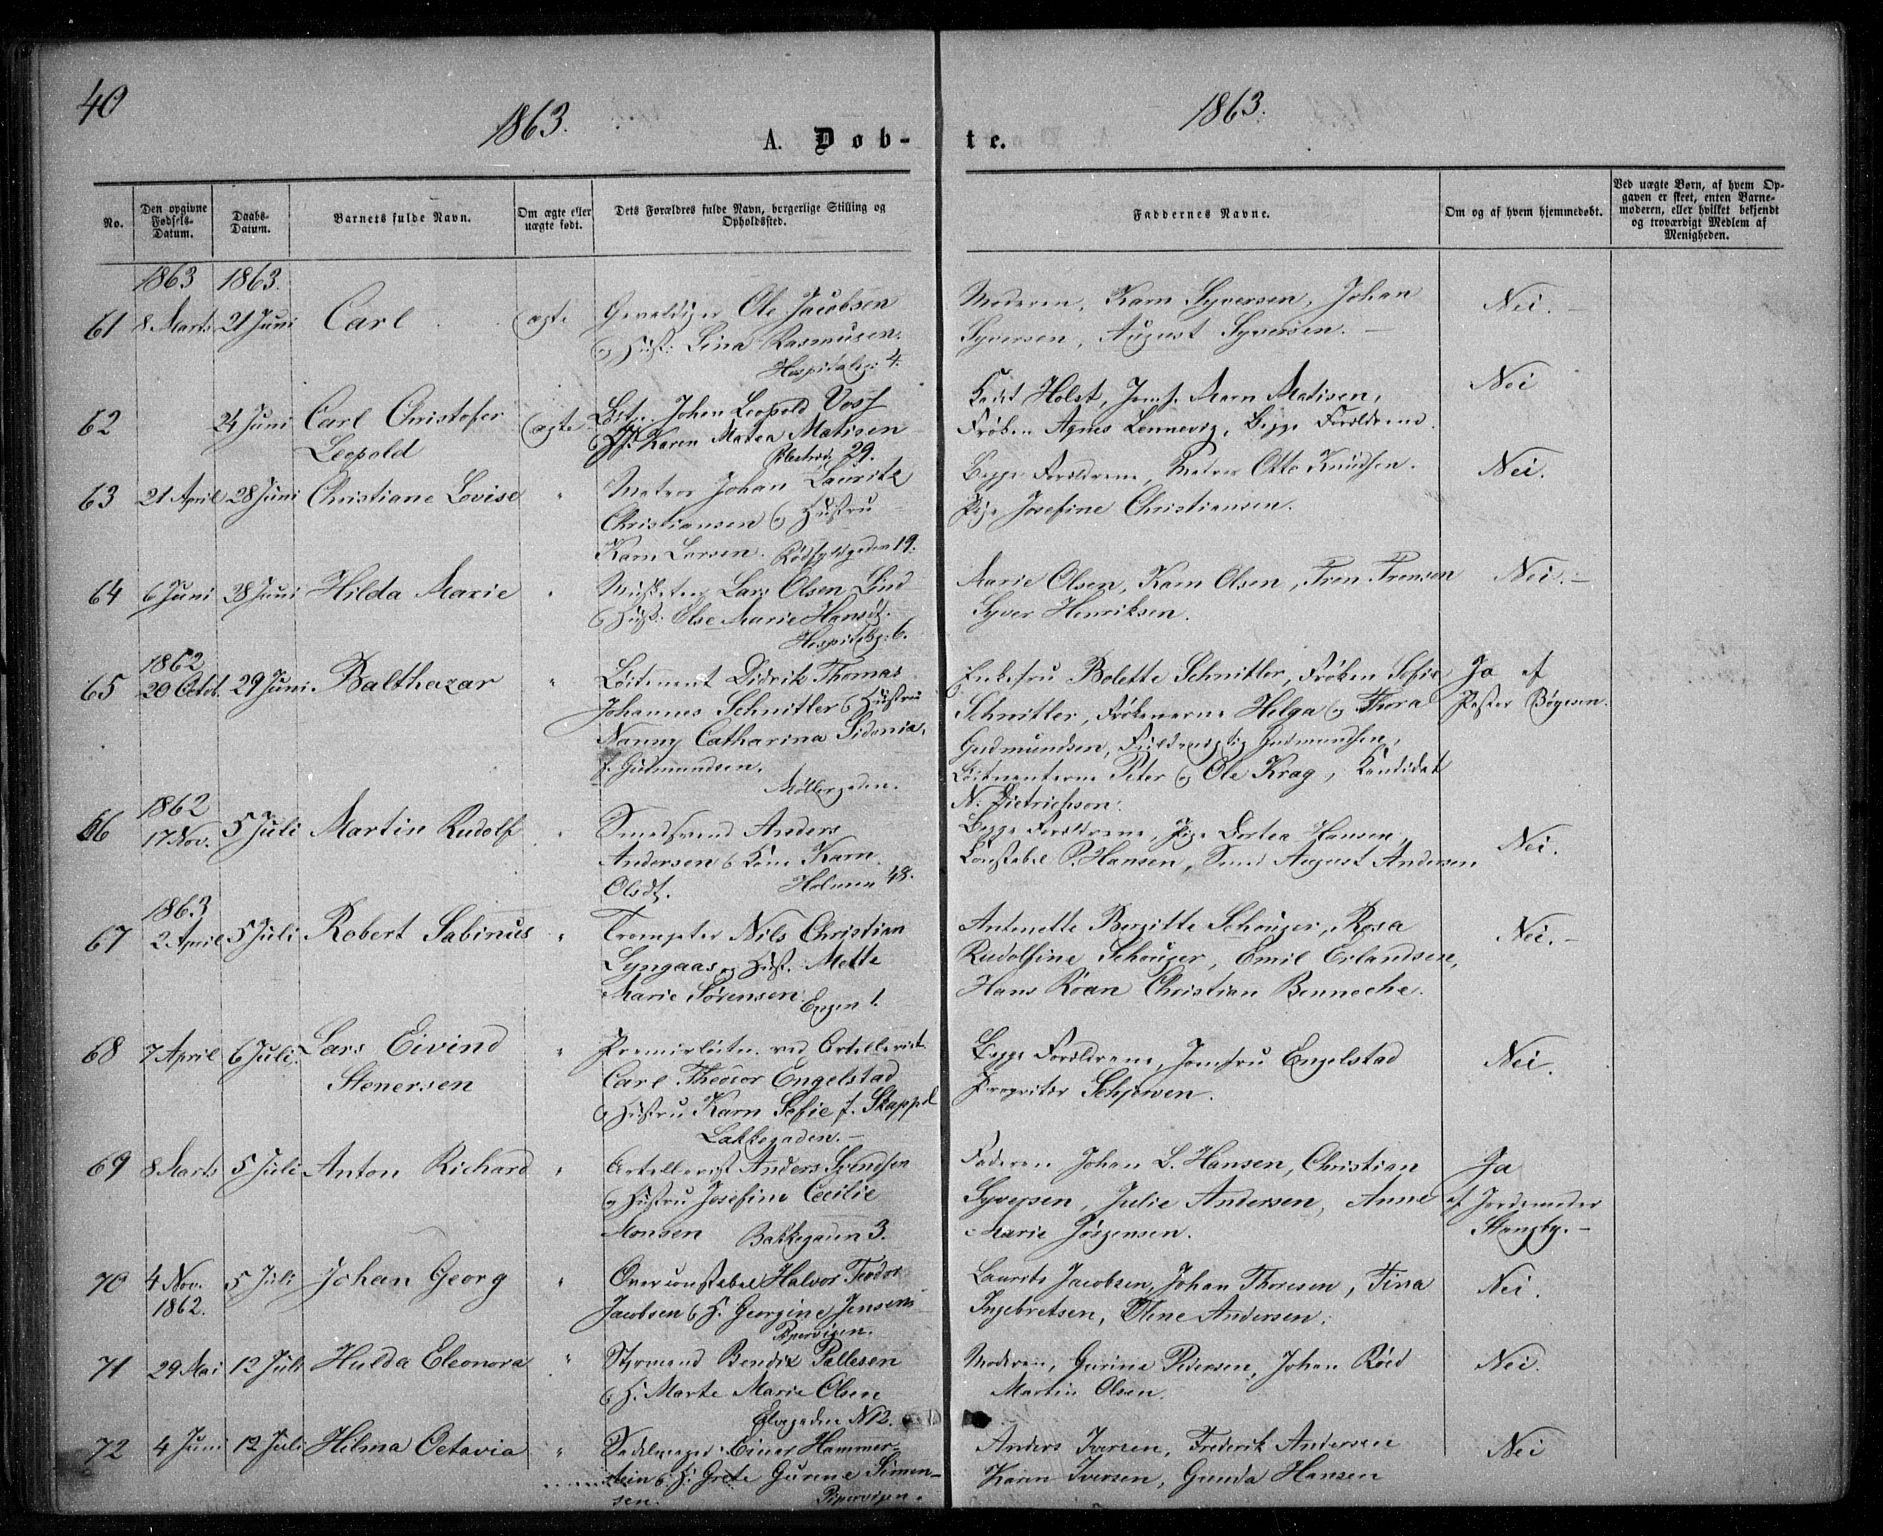 40
1863.
1863.
A. Døb-
te.
No.
Den opgivne Fødsels-Datum.
Daabs-Datum.
Barnets fulde Navn.
Om ægte eller uægte født.
Dets Forældres fulde Navn, borgerlige Stilling og Opholdssted.
Faddernes Navne.
Om og af hvem hjemmedøbt.
Ved uægte Børn, af hvem Op-
gaven er skeet, enten Barne-
moderen, eller hvilket bekjendt
og troværdigt Medlem af
Menigheden.
1863 1863.
61 8 Marts 21 Juni Carl ægte Gevaldiger Ole Jacobsen
og Hust: Lina Rasmusen.
Hospitalsg: 4.
Moderen, Karn Syversen, Johan
Syversen, August Syversen. –
Nei. –
62 24 Juni Carl Christofer
Leopold
ægte Johan Leopold Voss
Karen Matea Matisen
29.
Kadet Holst, Jomf. Marn Matisen,
Frøken Agnes Lennevig, Begge Forældrene.
Nei
63 21 April 28 Juni Christiane Lovise " Matros Johan Lauritz
Christiansen og Hustru
Karn Larsen. Rødfyldgaden 19.
Begge Forældrene, Matros Otto Knudsen.
Pige Josefine Christiansen.
Nei.
64 6 Juni 28 Juni Hilda Marie " Musketer Lars Olsen Lind
Hust. Else Marie Hansdt.
Hospitalsg: 6.
Marie Olsen, Karn Olsen,
Syver Henriksen.
Nei. –
1862
65 20 Octbr. 29 Juni Balthazar " Løitenant Didrik Thomas
Johannes Schnitler og Hustru
Nanny Catharina Sidonia,
f. Gudmundsen.
Møllergaden.
Enkefru Bolette Schnitler, Frøken Sofie
Schnitler, Frøknerne Helga og Thora
Gudmundsen, Gudmundsen,
Løitnanterne Peter og Ole Krag, Kandidat
N. Dietrichson.
Ja af
Pastor Bøgesen.
1862
66 17 Nov. 5 Juli Martin Rudolf " Smedsvend Anders
Andersen og Kone Karn
Olsdt. Holmen 48.
Begge Forældrene, Pige Dortea Hansen,
Konstabel P. Hansen, Smed August Andersen
Nei.
1863
67 2 April 5 Juli Robert Sabinus " Trompeter Nils Christian
Lyngaas og Hust. Mette
Marie Sørensen Engen 1.
Antonette Birgitte Schouger, Rosa
Rudolfine Schouger, Emil Erlandsen,
Hans Roan Christian Benneche.
Nei. –
68 7 April 6 Juli Lars Eivind
Stenersen
" Premierløitn. ved Artilleriet
Carl Theodor Engelstad
og Hustru Karn Sofie f. Skappel
Lakkegaden. –
Begge Forældrene, Jomfru Engelstad
Proprietær Schjørven.
Nei.
69 8 Marts 5 Juli Anton Richard " Artillerist Anders Svendsen
og Hustru Josefine Cecilie
Monsen Bakkegaden 3.
Faderen Johan L. Hansen, Christian
Syversen, Julie Andersen, Anne
Marie Jørgensen.
Ja
af Jordemoder
Stangby. –
70 4 Nov.
1862.
5 Juli Johan Georg " Overconstabel Halvor Teodor
Jacobsen og H. Georgine Jensen
Pipervigen.
Laurits Jacobsen, Johan Thoresen, Tina
Ingebretsen, Oline Andersen.
Nei.
71 29 Mai 12 Juli Hulda Eleonora " Styrmand Bendix Pallesen
og H. Marte Marie Olsen
Elvegaden N 12.
Moderen, Gurine Pedersen, Johan Röed
Martin Olsen.
Nei.
72 4 Juni 12 Juli Hilma Octavia " Sadelmager Einar Hammer-
stein og H. Grete Gurine Simen-
sen. Pipervigen.
Anders Iversen, Frederik Andersen
Karen Iversen, Gunda Hansen
Nei